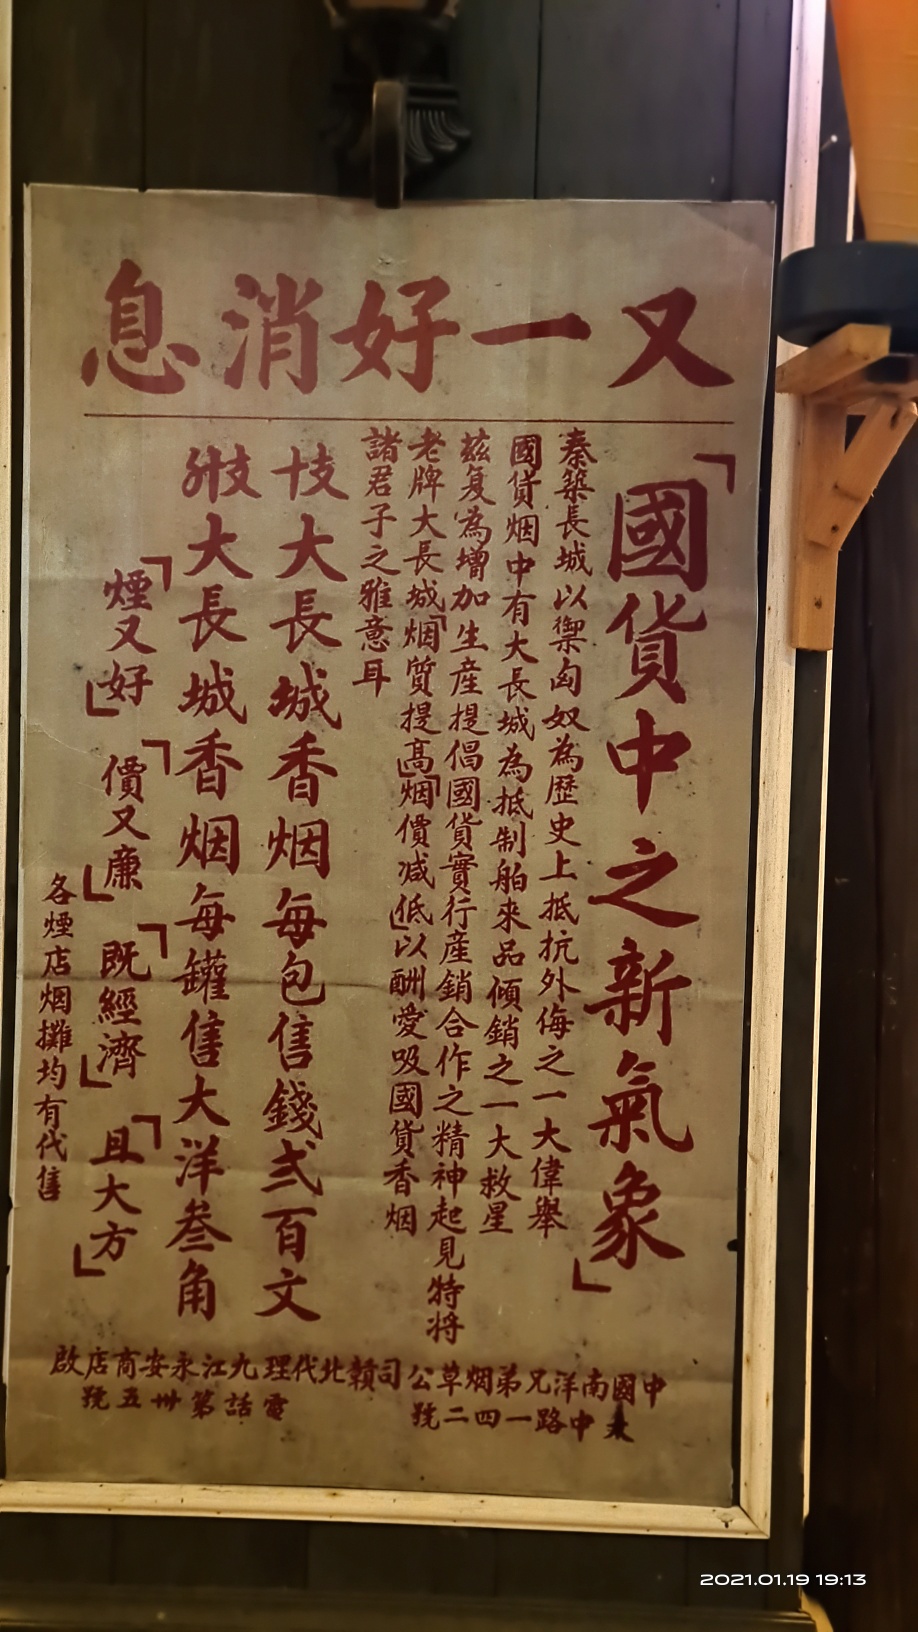 又一好消息
「國貨中之新氣象」
秦築長城以禦匈奴為歷史上抵抗外侮之一大偉舉
國貨烟中有大長城為抵制舶來品傾銷之一大救星
茲复為增加生產提倡國貨實行產銷合作之精神起見特将
老牌大長城「烟質提高」「烟價減低」以酬愛吸國貨香烟
諸君子之雅意耳
十支大長城香烟每包售錢弍百文
卅支大長城香烟每罐售大洋叁角
「煙又好」「價又廉」「既經濟」「且大方」
各煙店烟攤均有代售
中國南洋兄弟烟草公司贛北代理九江永安商店啟
中路一四二號
電話第卅五號
2021.01.19 19:13